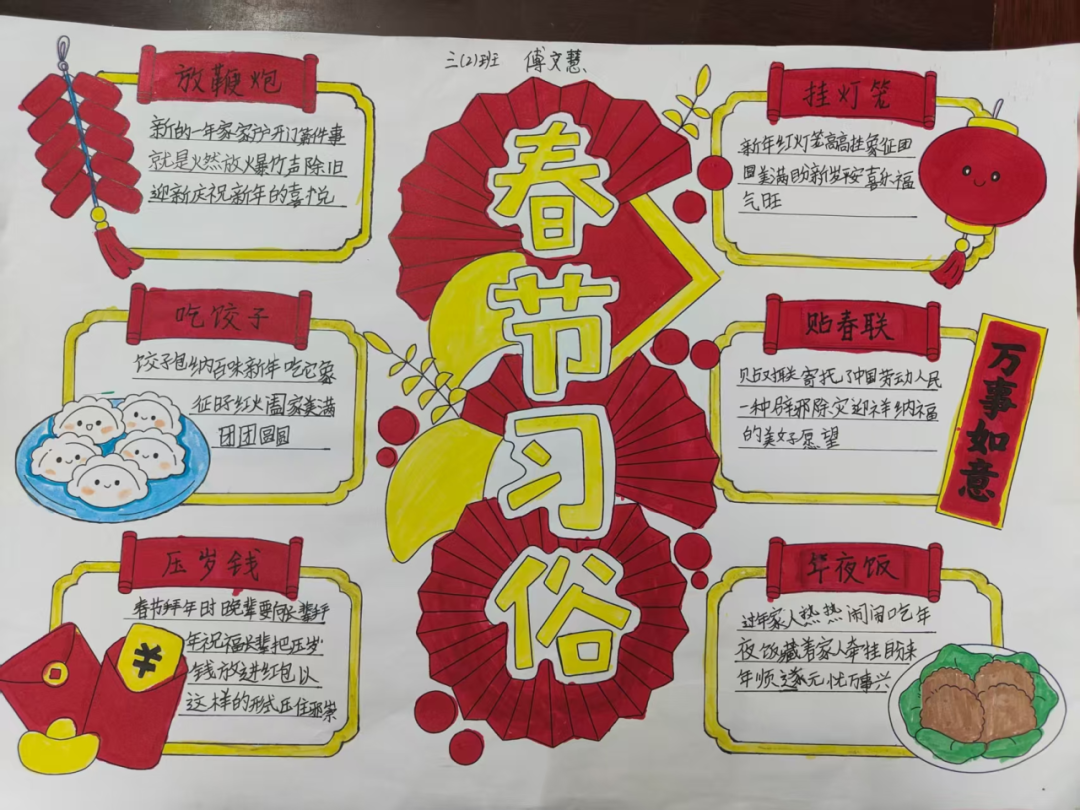 三(2)班 傅文慧
春节习俗
放鞭炮
新的一年家家户户开门第件事
就是火然放火暴竹声除旧
迎新庆祝新年的喜悦
吃饺子
饺子包纳百味新年吃它象
征日子红火阖家美满
团团圆圆
压岁钱
春节拜年时晚辈要向长辈拜
年祝福长辈把压岁
钱放进红包以
这样的形式压住邪祟
挂灯笼
新年红灯笼高高挂象征团
圆美满盼新岁平安喜乐福
气旺
贴春联
贴双联寄托了中国劳动人民
一种辟邪除灾迎祥纳福
的美好愿望
万事如意
年夜饭
过年家人热热闹闹吃年
夜饭藏着家人牵挂盼来
年顺遂无忧万事兴